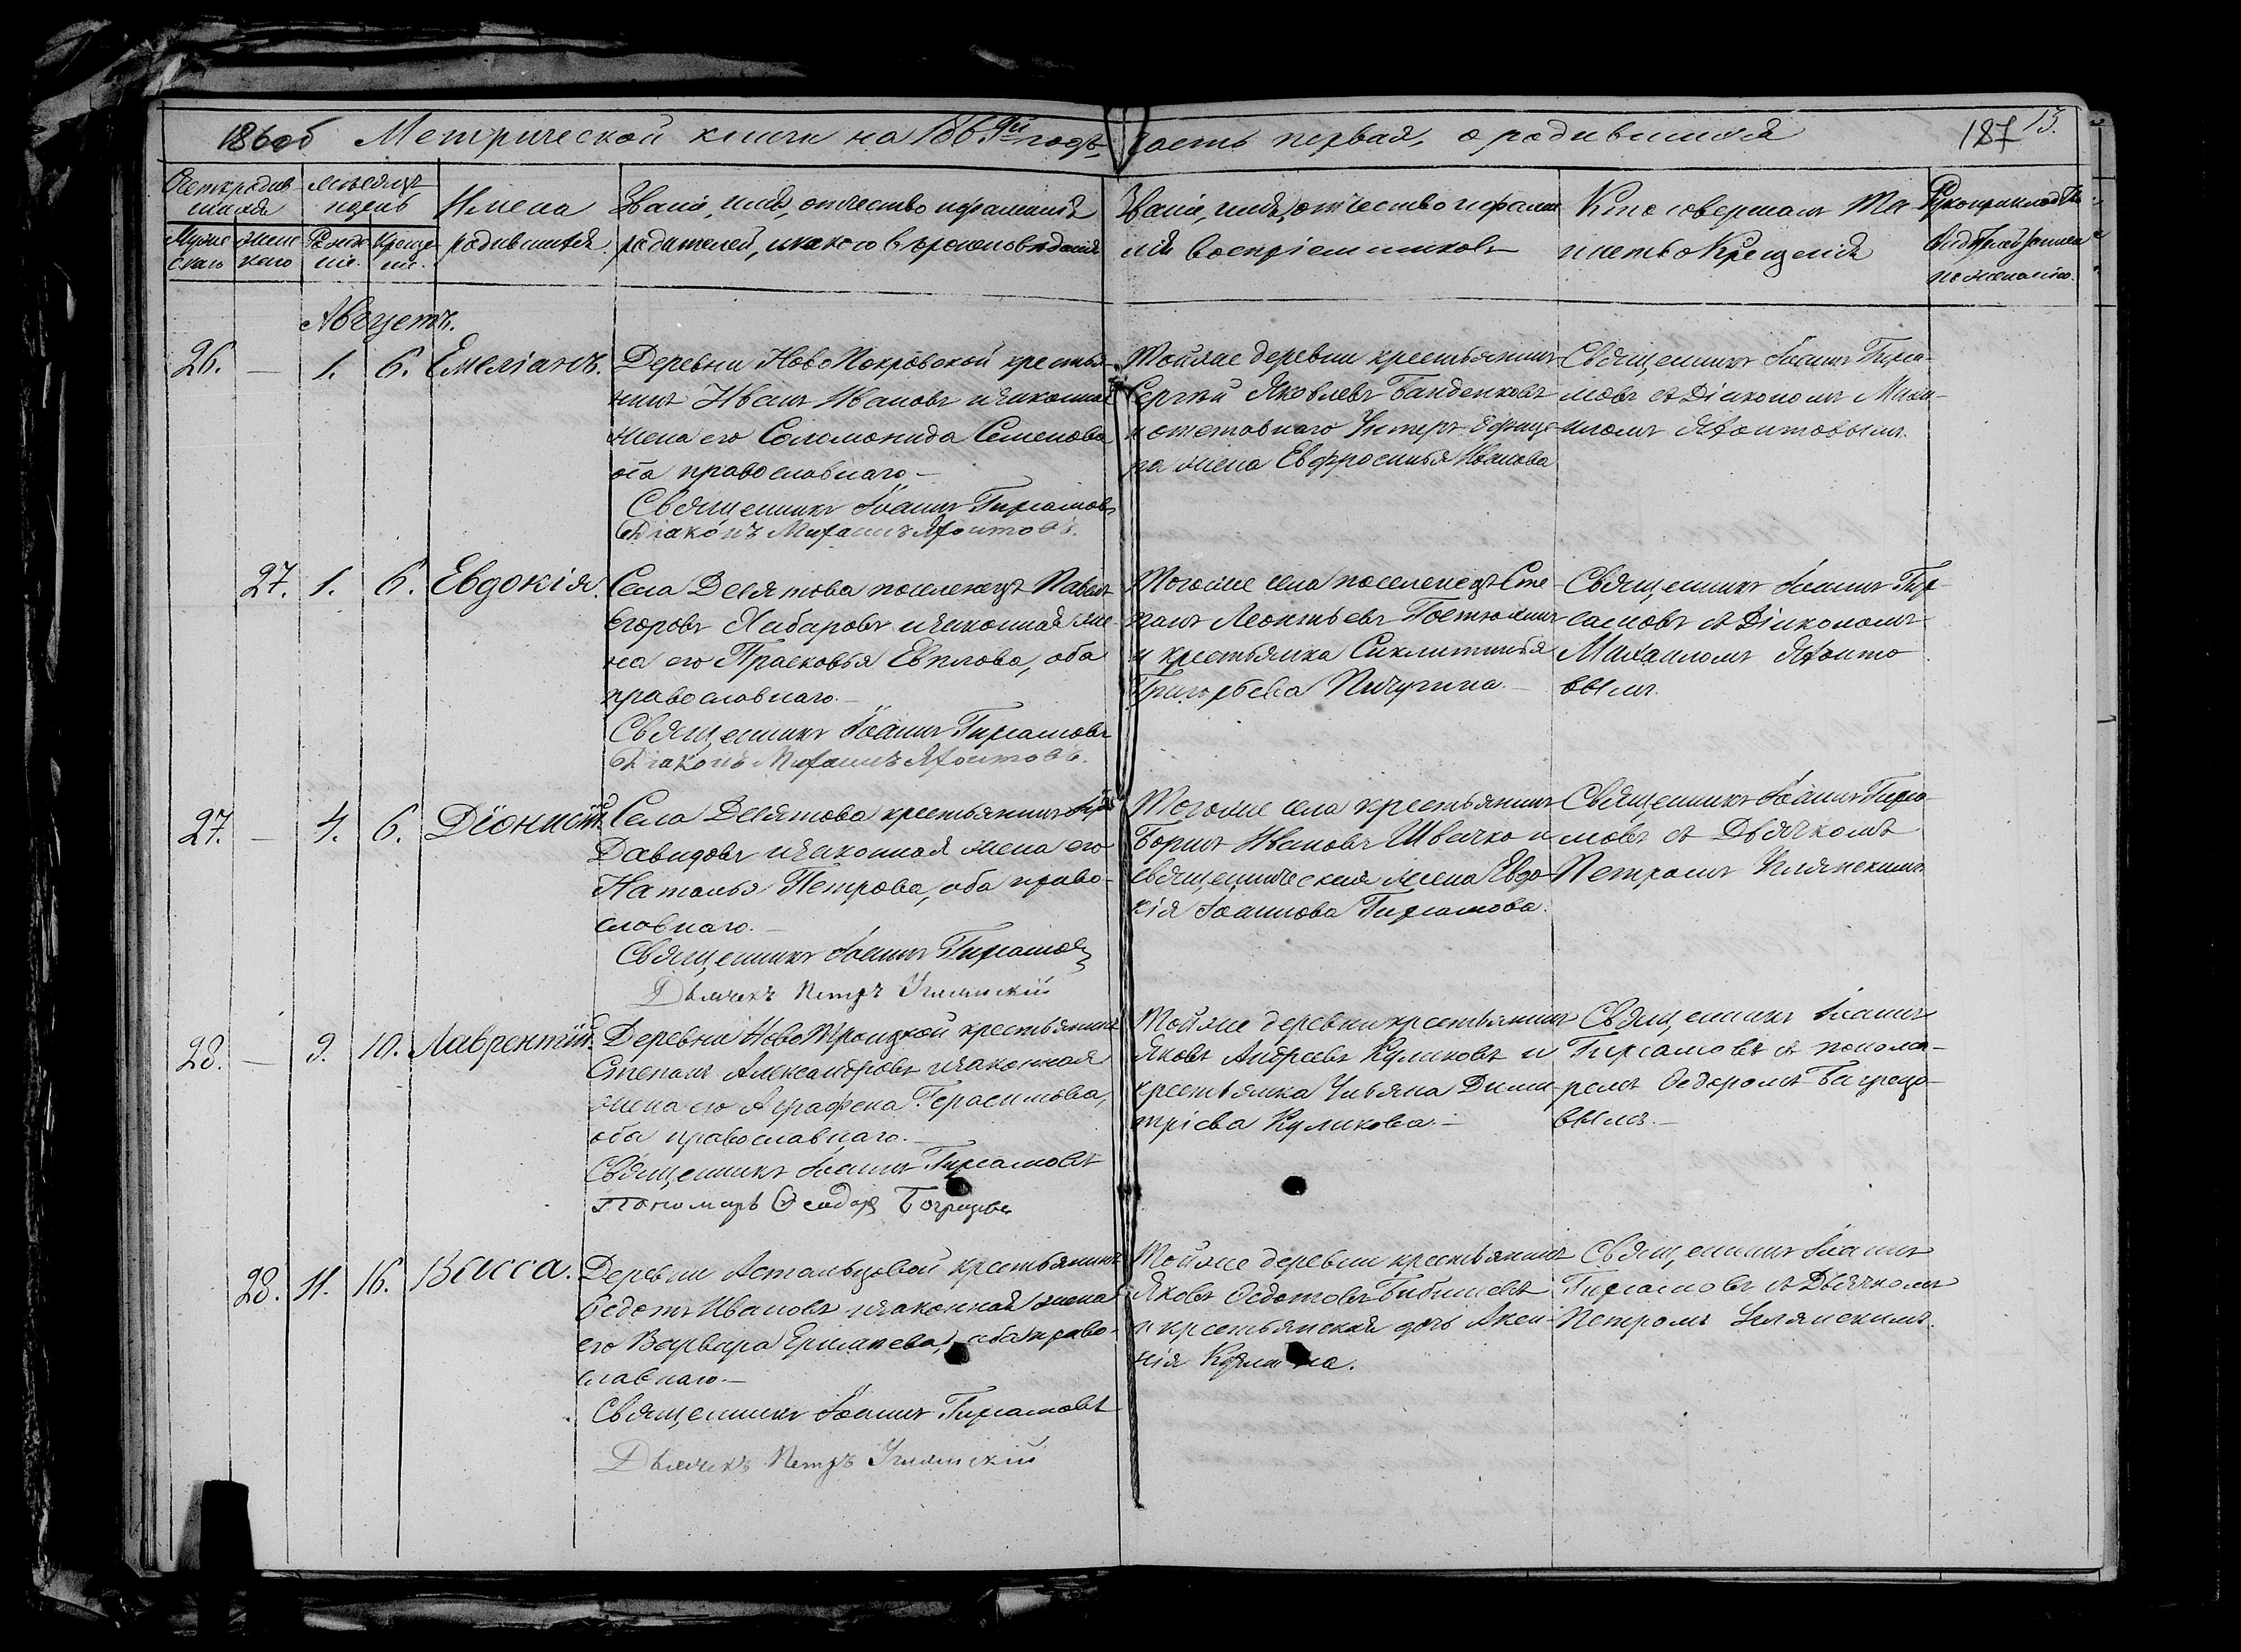 186об Метрической книги на 186 годъ, часть первая, о родившихся 187 13.
Счетъ родив-
шихся
Мѣсяцъ
и день
Имена
родившихся.
Званіе, имя, отчество и фамилія
родителей, и какого вѣроисповѣданія
Званіе, имя, отчество и фами-
лія воспріемниковъ
Кто совершалъ Та-
инство Крещенія
Рукоприкладство
свидѣтелей записи
по желанію.
Муже-
скаго
Жен-
скаго
Рожде-
ніе.
Креще-
ніе.
Августъ.
26. — 1. 6. Емеліанъ.
Деревни Ново Покровской крестья-
нинъ Иванъ Ивановъ и законная
жена его Соломонида Семенова
оба православнаго.—
Священникъ Іоаннъ
Діаконъ Михаилъ Яхонтовъ.
Той же деревни крестьянинъ
Сергѣй Яковлевъ Банденковъ
и отставнаго Унтеръ-Офице-
ра жена Евфросинья Иванова
Священникъ Іоаннъ
съ Діакономъ Миха-
иломъ Яхонтовымъ.
27. 1. 6. Евдокія.
Села Девятова поселенецъ Павелъ
Егоровъ Хабаровъ и законная же-
на его Прасковья Евплова, оба
православнаго.—
Священникъ Іоаннъ
Діаконъ Михаилъ Яхонтовъ.
Того же села поселенецъ Сте-
панъ Леонтьевъ
и крестьянка Синклитинья
Григорьева Пичугина.—
Священникъ Іоаннъ
съ Діакономъ
Михаиломъ Яхонто-
вымъ.
27. — 4. 6. Діонисій.
Села Девятова крестьянинъ
Давидовъ и законная жена его
Наталья Петрова, оба право-
славнаго.—
Священникъ Іоаннъ
Дьячекъ Петръ Углянскій
Того же села крестьянинъ
Борисъ Ивановъ Швачко и
священническая жена Евдо-
кія Іоаннова
Священникъ Іоаннъ
съ Дьячкомъ
Петромъ Углянскимъ
28. — 9. 10. Лаврентій.
Деревни Ново Троицкой крестьянинъ
Степанъ Александровъ и законная
жена его Аграфена Герасимова,
оба православнаго.—
Священникъ Іоаннъ
Пономарь Ѳеодоръ
Той же деревни крестьянинъ
Яковъ Андреевъ Куликовъ и
крестьянка Ульяна Дими-
тріева Куликова.—
Священникъ Іоаннъ
съ понома-
ремъ Ѳедоромъ
вымъ.—
28. 11. 16. Васса.
Деревни Астальцовой крестьянинъ
Ѳедотъ Ивановъ и законная жена
его Варвара Ермилаева, оба право-
славнаго.—
Священникъ Іоаннъ
Дьячекъ Петръ Углянскій
Той же деревни крестьянинъ
Яковъ Ѳедотовъ
и крестьянская дочь Аксе-
нія
Священникъ Іоаннъ
съ Дьячкомъ
Петромъ Углянскимъ.